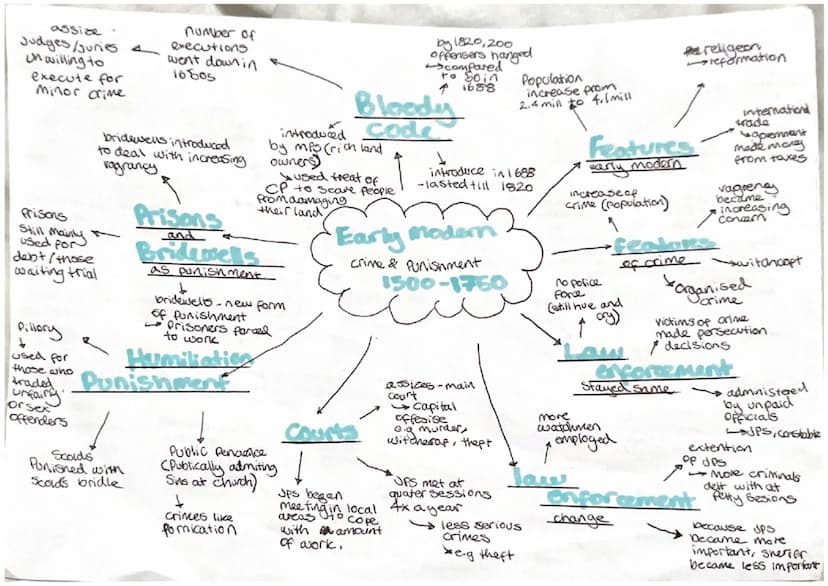 Early Modern
crime & punishment
1500-1750
Bloody
Code
number of
executions
went down in
1680s
assize
Judges/Juries
unwilling to
execute for
minor crime
by 1820, 200
offensers hanged
compared
to 50 in
1688
introduced
by MPs (rich land
owners)
used treat of
CP to scare people
from damaging
their land
introduce in 1688
- lasted till 1820
Features
early modern
Population
increase from
2.4 mill to 4.1 mill
religeon
reformation
international
trade
government
made money
from taxes
features
of crime
increase of
crime (population)
vagrency
became
increasing
concern
Organised
crime
Law
enforcement
Stayed same
no police
force
(still hue and
cry)
victims of crime
made persecution
decisions
by unpaid
officials
JPS, constable
law
enforcement
change
more
watchmen
employed
extention
of JPS
more criminals
delt with at
petty sesions
because JPS
became more
important, sherif
became less important
Courts
assizes - main
court
capital
e.g murder,
theft
JPS met at
quater sessions
4x a year
less serious
crimes
e.g theft
JPS began
meeting in local
areas to cope
with amount
of work.
Humiliation
Punishment
Pillory
used for
those who
traded
unfairly
or sex
offenders
Scolds
Punished with
scolds bridle
Public Penance
(Publically admiting
Sins at church)
crimes like
fornication
Prisons
and
Bridewells
as punishment
bridewells introduced
to deal with increasing
vagrancy
Prisons
still mainly
used for
debt/those
waiting trial
bridewells - new form
of punishment
Prisoners forced
to work